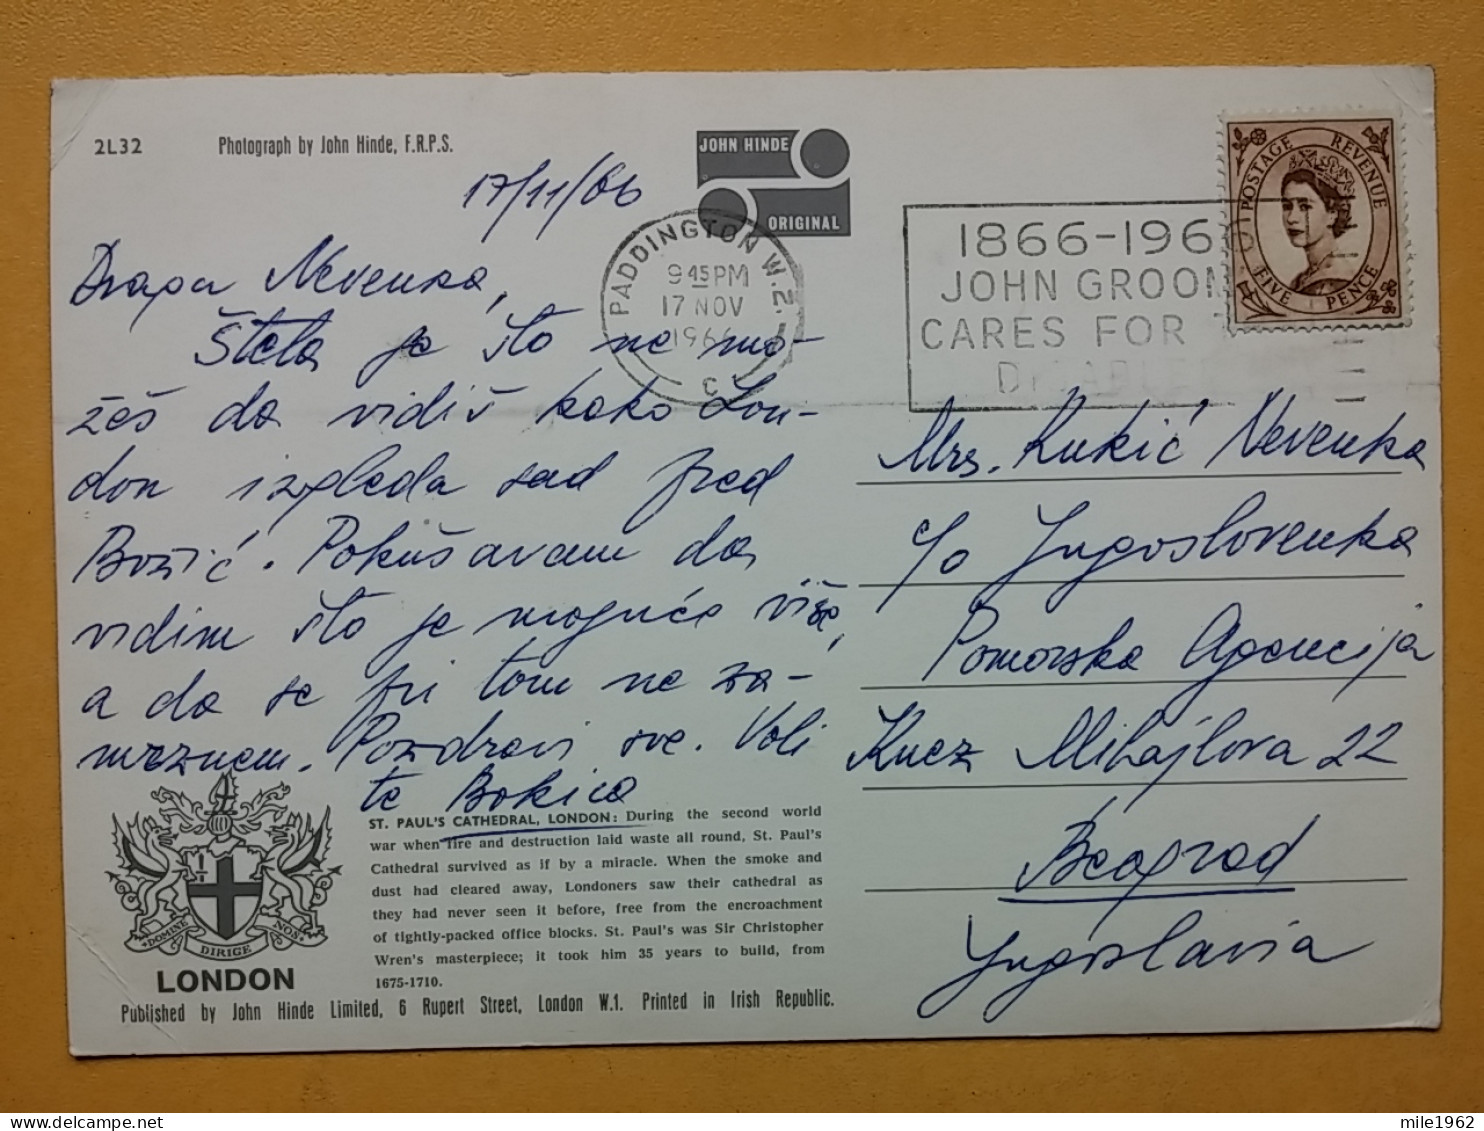 2L32
Photograph by John Hinde, F.R.P.S.
JOHN HINDE
ORIGINAL
17/11/66
PADDINGTON W.2.
9 45 PM
17 NOV
1966
C
1866-196
JOHN GROOM
CARES FOR
DISABLED
POSTAGE REVENUE
FIVE PENCE
Draga Nevenka,
Šteta je što ne mo-
žeš da vidiš kako Lon-
don izgleda sad pred
Božić. Pokušavam da
vidim što je moguće više,
a da se pri tom ne za-
mrznem. Pozdravi sve. Voli
te Bokica
Mrs. Kukić Nevenka
c/o Jugoslovenka
Pomorska Agencija
Knez Mihajlova 22
Beograd
Yugoslavia
DOMINE DIRIGE NOS
LONDON
ST. PAUL'S CATHEDRAL, LONDON: During the second world
war when fire and destruction laid waste all round, St. Paul's
Cathedral survived as if by a miracle. When the smoke and
dust had cleared away, Londoners saw their cathedral as
they had never seen it before, free from the encroachment
of tightly-packed office blocks. St. Paul's was Sir Christopher
Wren's masterpiece; it took him 35 years to build, from
1675-1710.
Published by John Hinde Limited, 6 Rupert Street, London W.1. Printed in Irish Republic.
mile1962